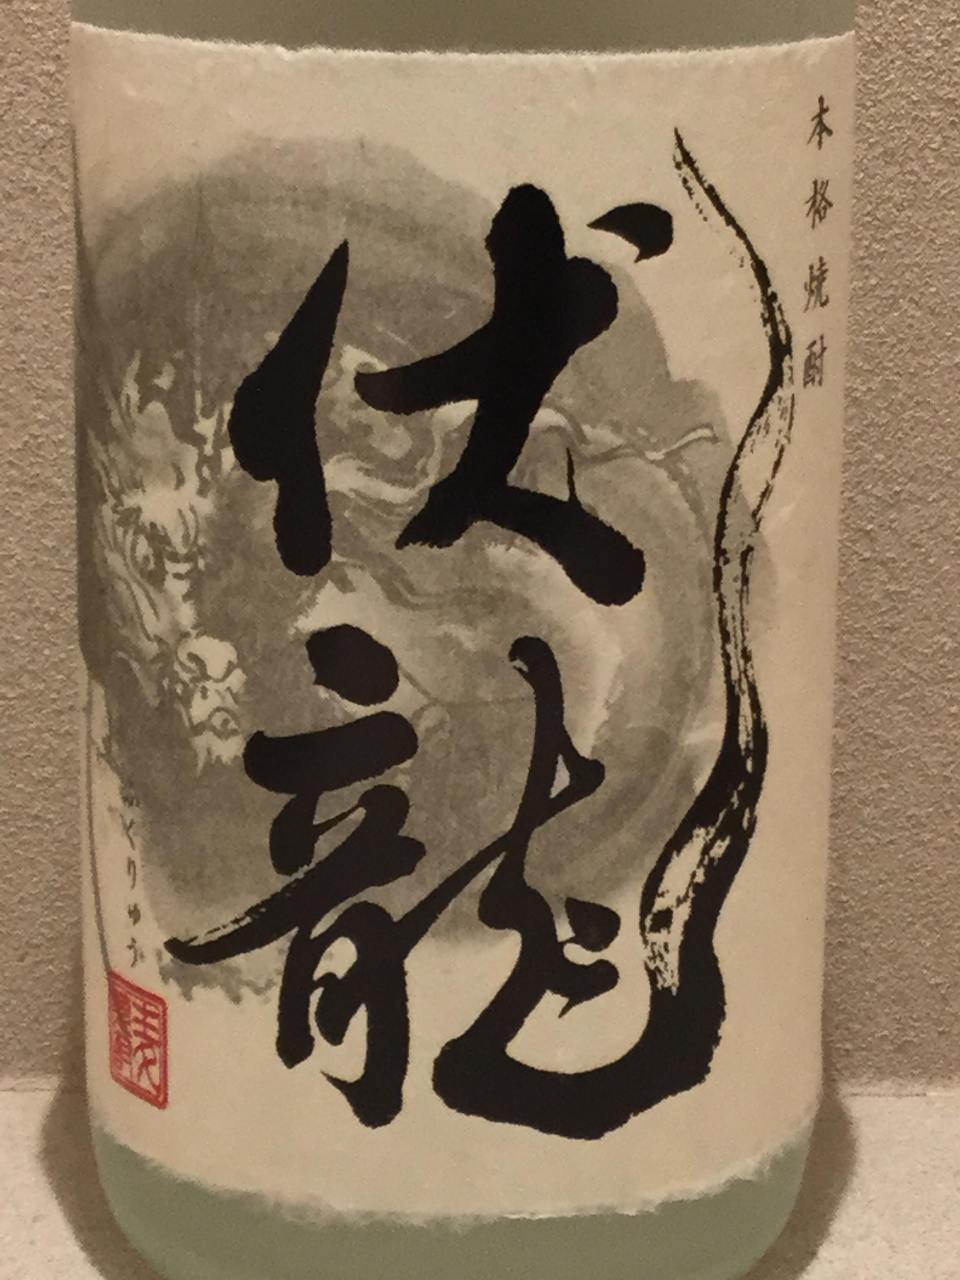 本格焼酎
伏龍
ふくりゅう